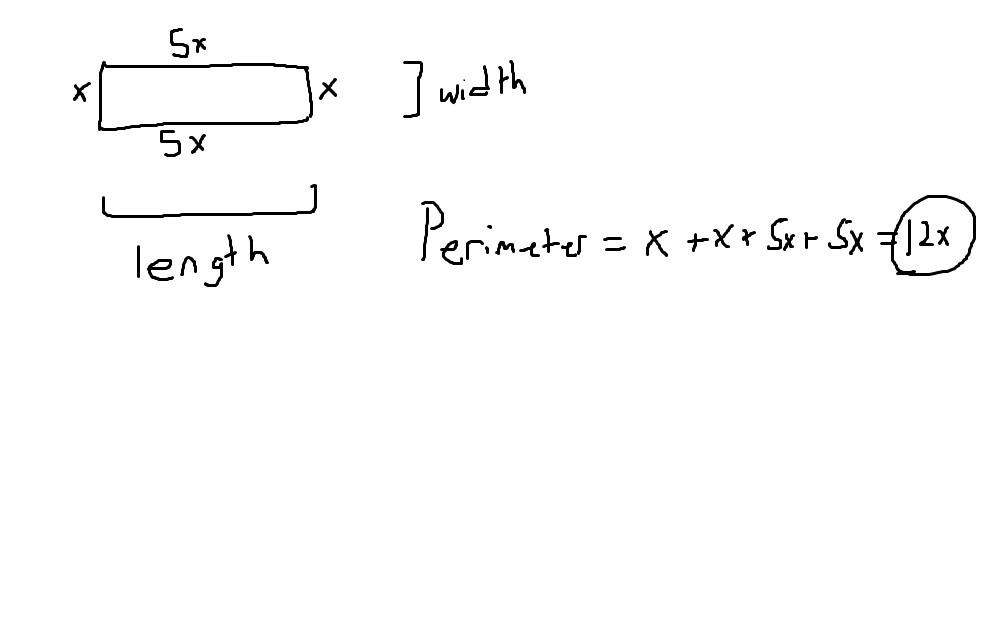 5x
x
x
] width
5x
length
Perimeter = x + x + 5x + 5x = 12x